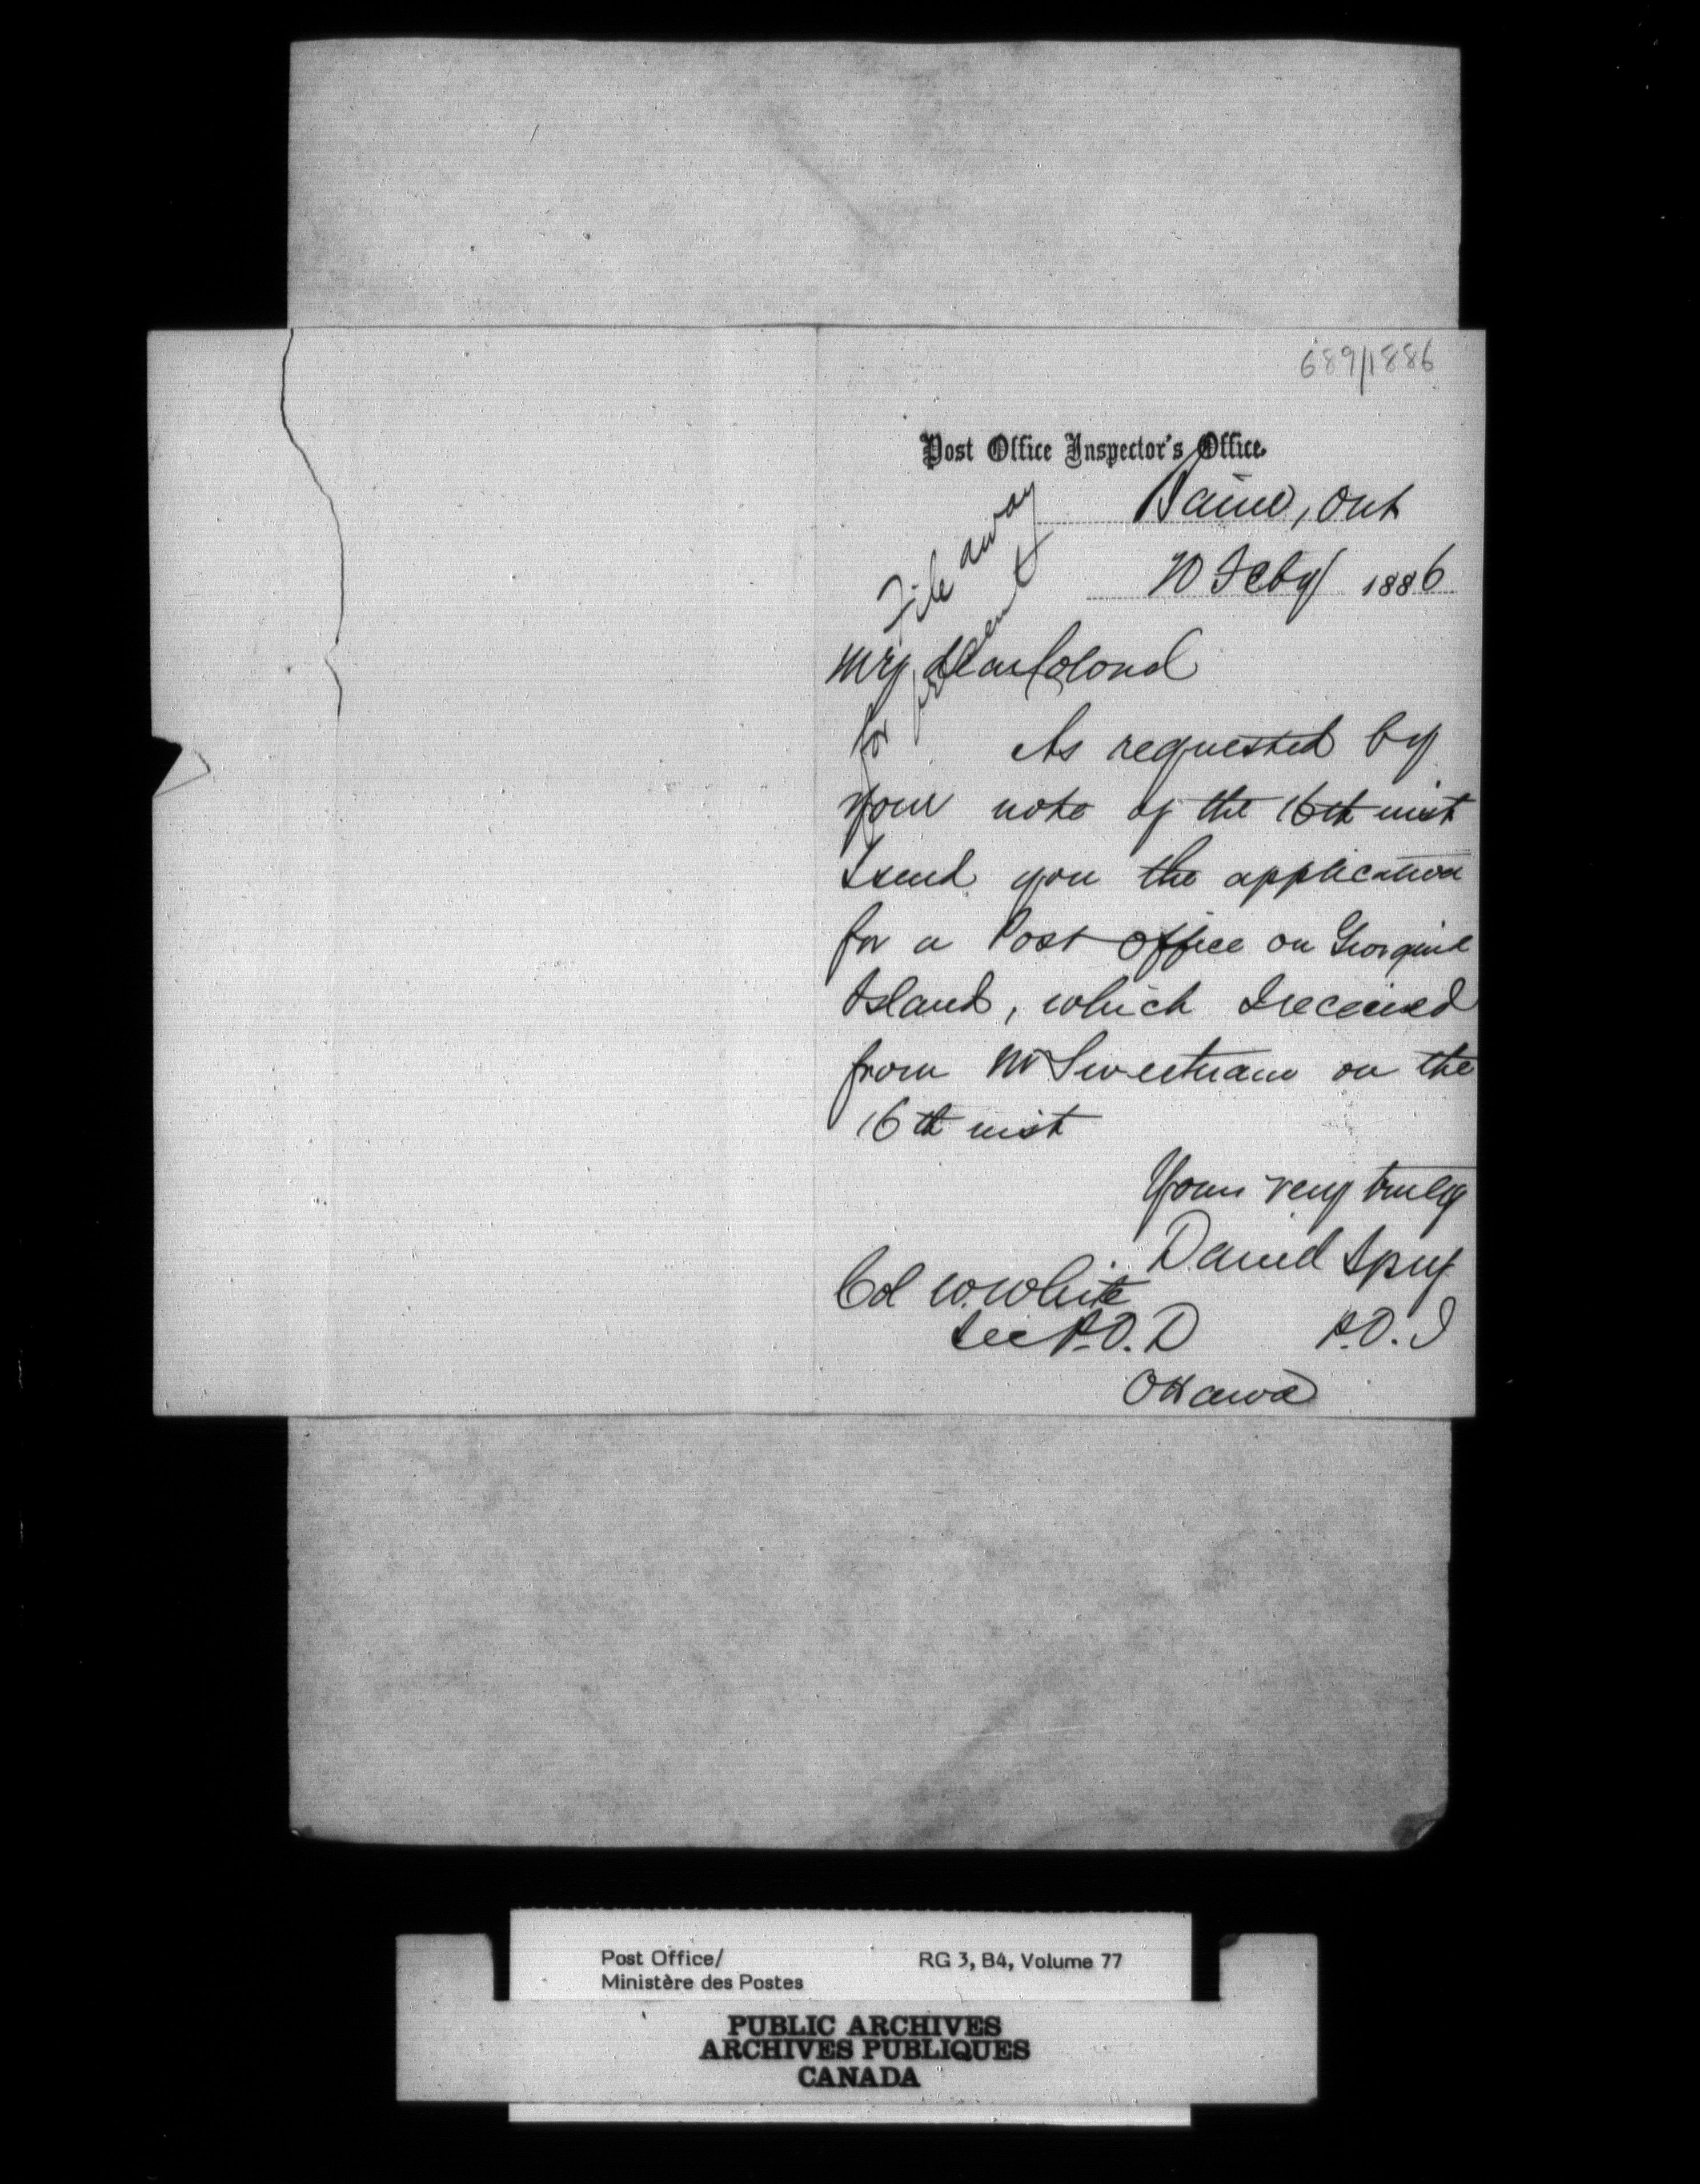 689/1886
Post Office Inspector's Office.
Barrie, Ont
20 Feby 1886
File away
for present
My dear Colonel
As requested by
your note of the 16th inst
I send you the application
for a Post Office on Georgina
Island, which I received
from Mr Sweetnam on the
16th inst
Yours very truly
Daniel Spry
P.O.I
Col W. White
Sec P.O.D
Ottawa
Post Office/
Ministère des Postes
RG 3, B4, Volume 77
PUBLIC ARCHIVES
ARCHIVES PUBLIQUES
CANADA